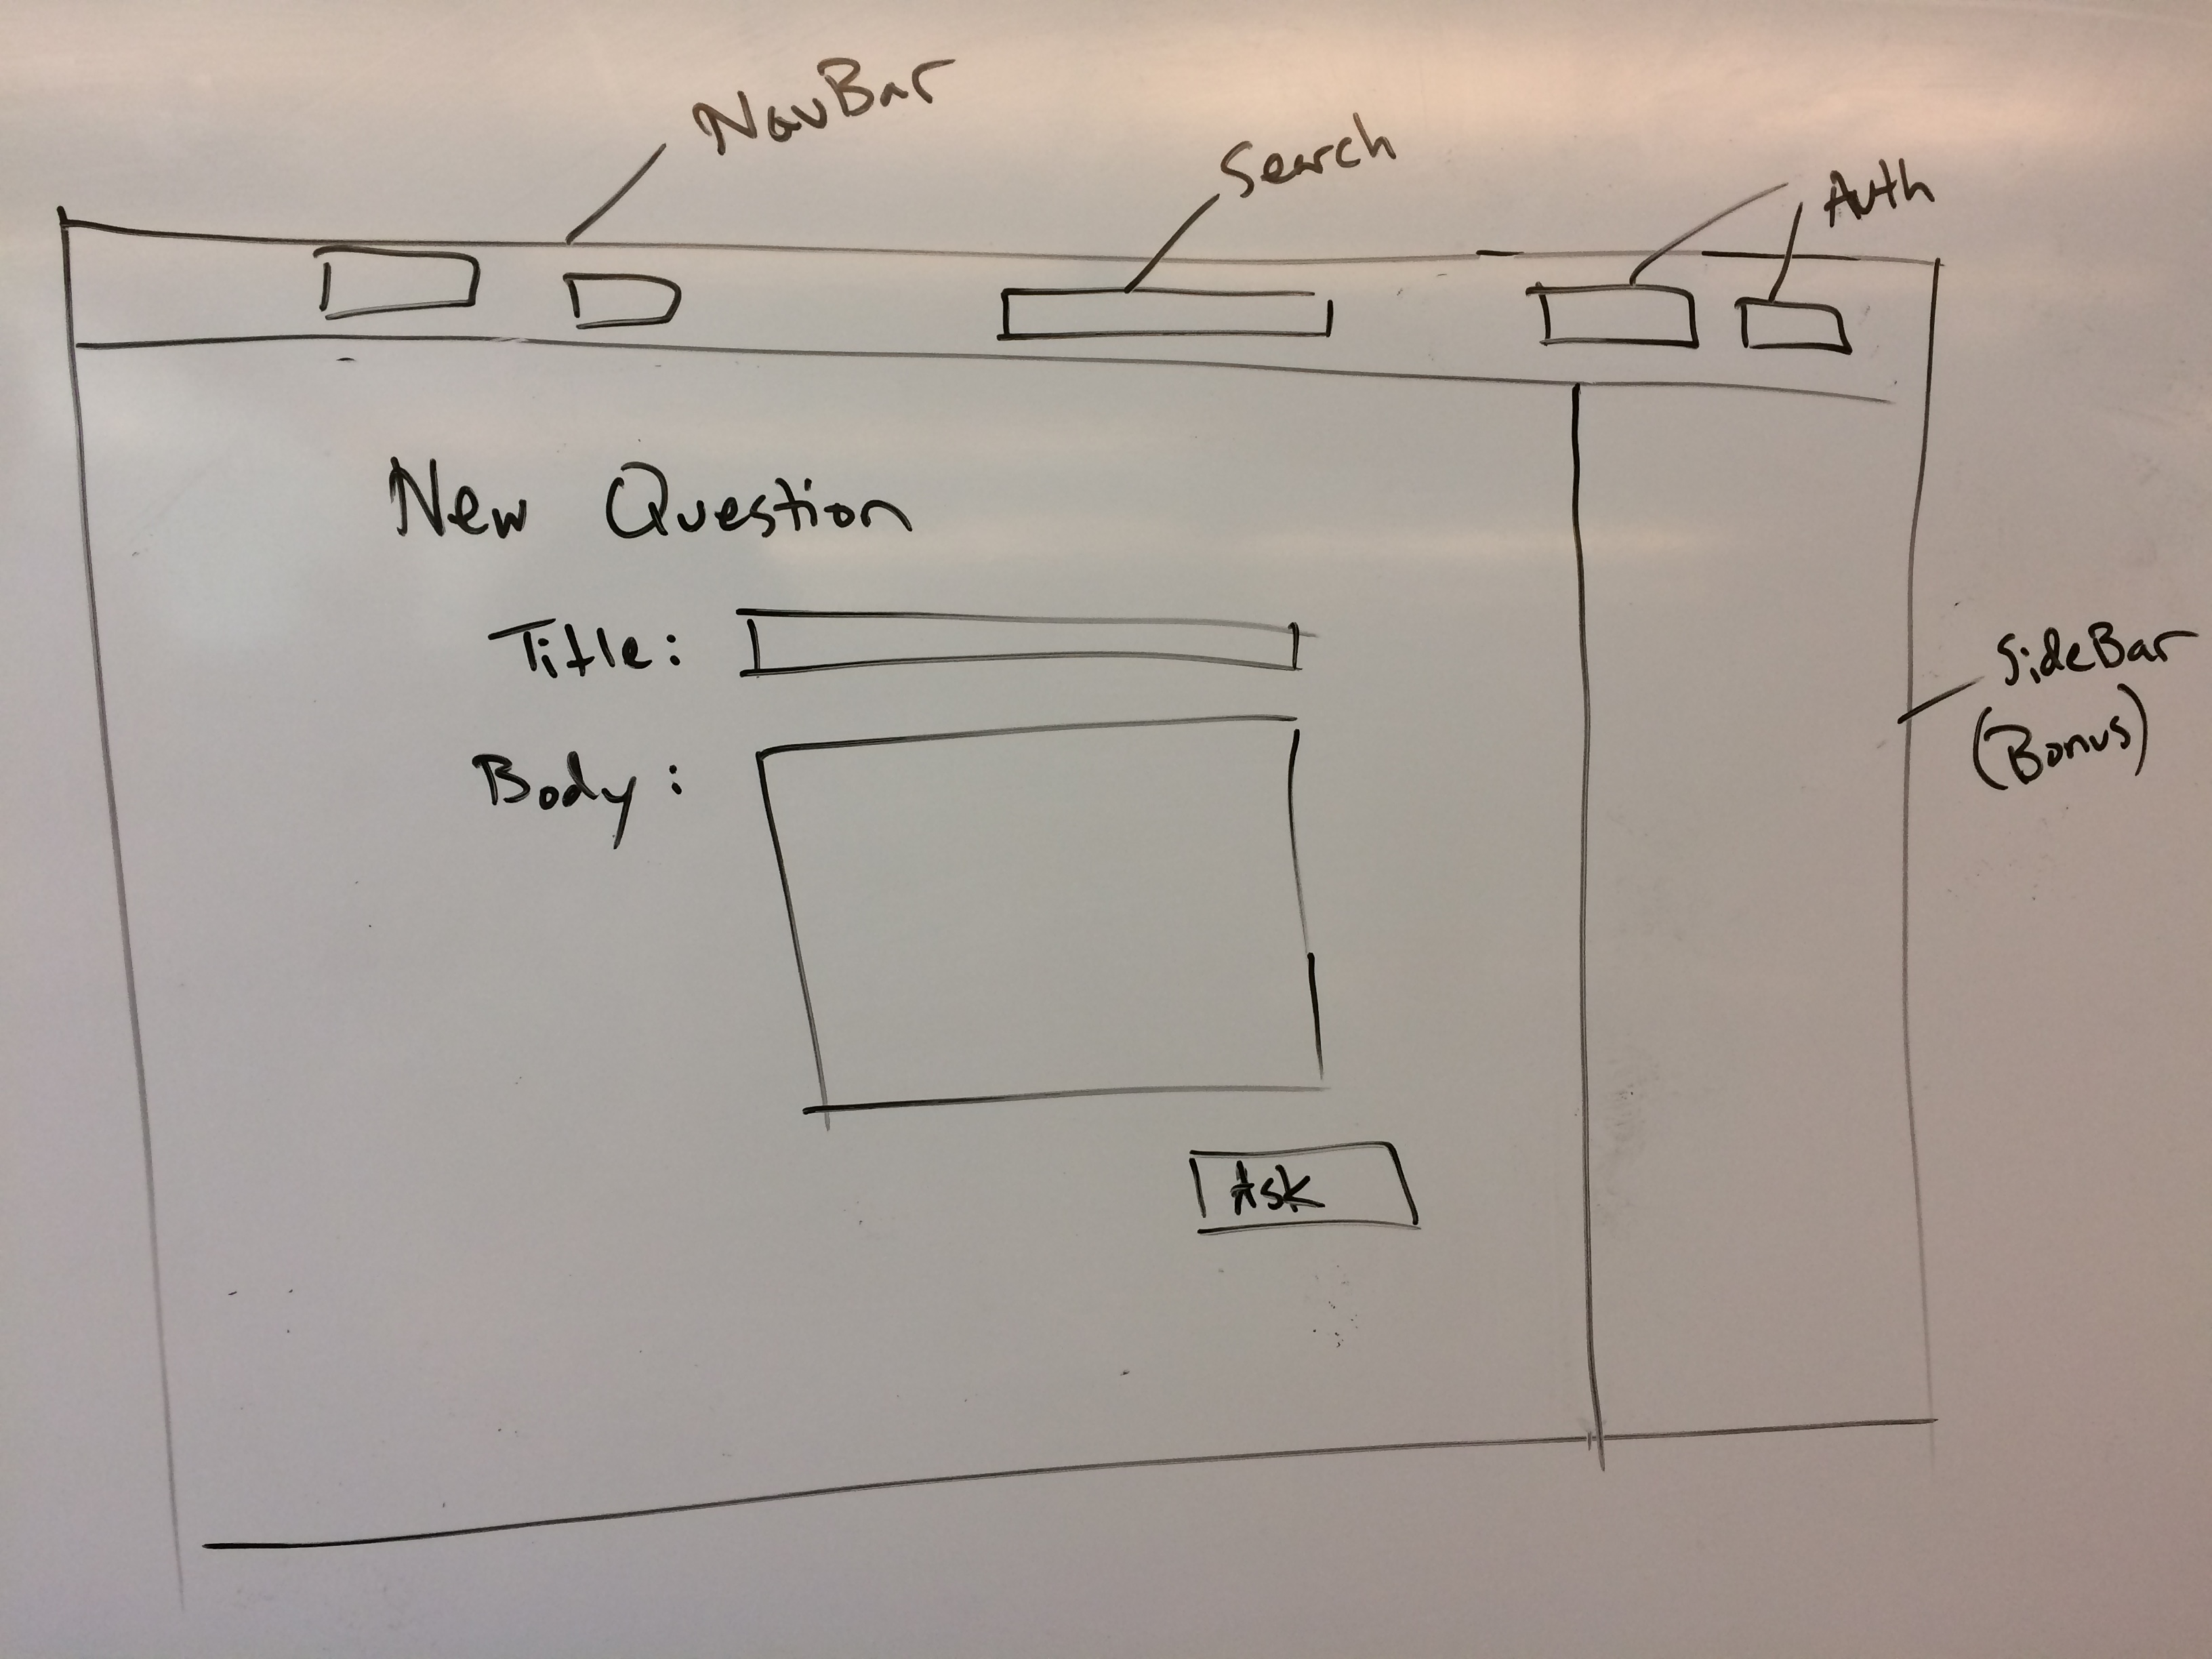 NavBar
Search
Auth
New Question
Title:
Body:
SideBar
(Bonus)
Ask